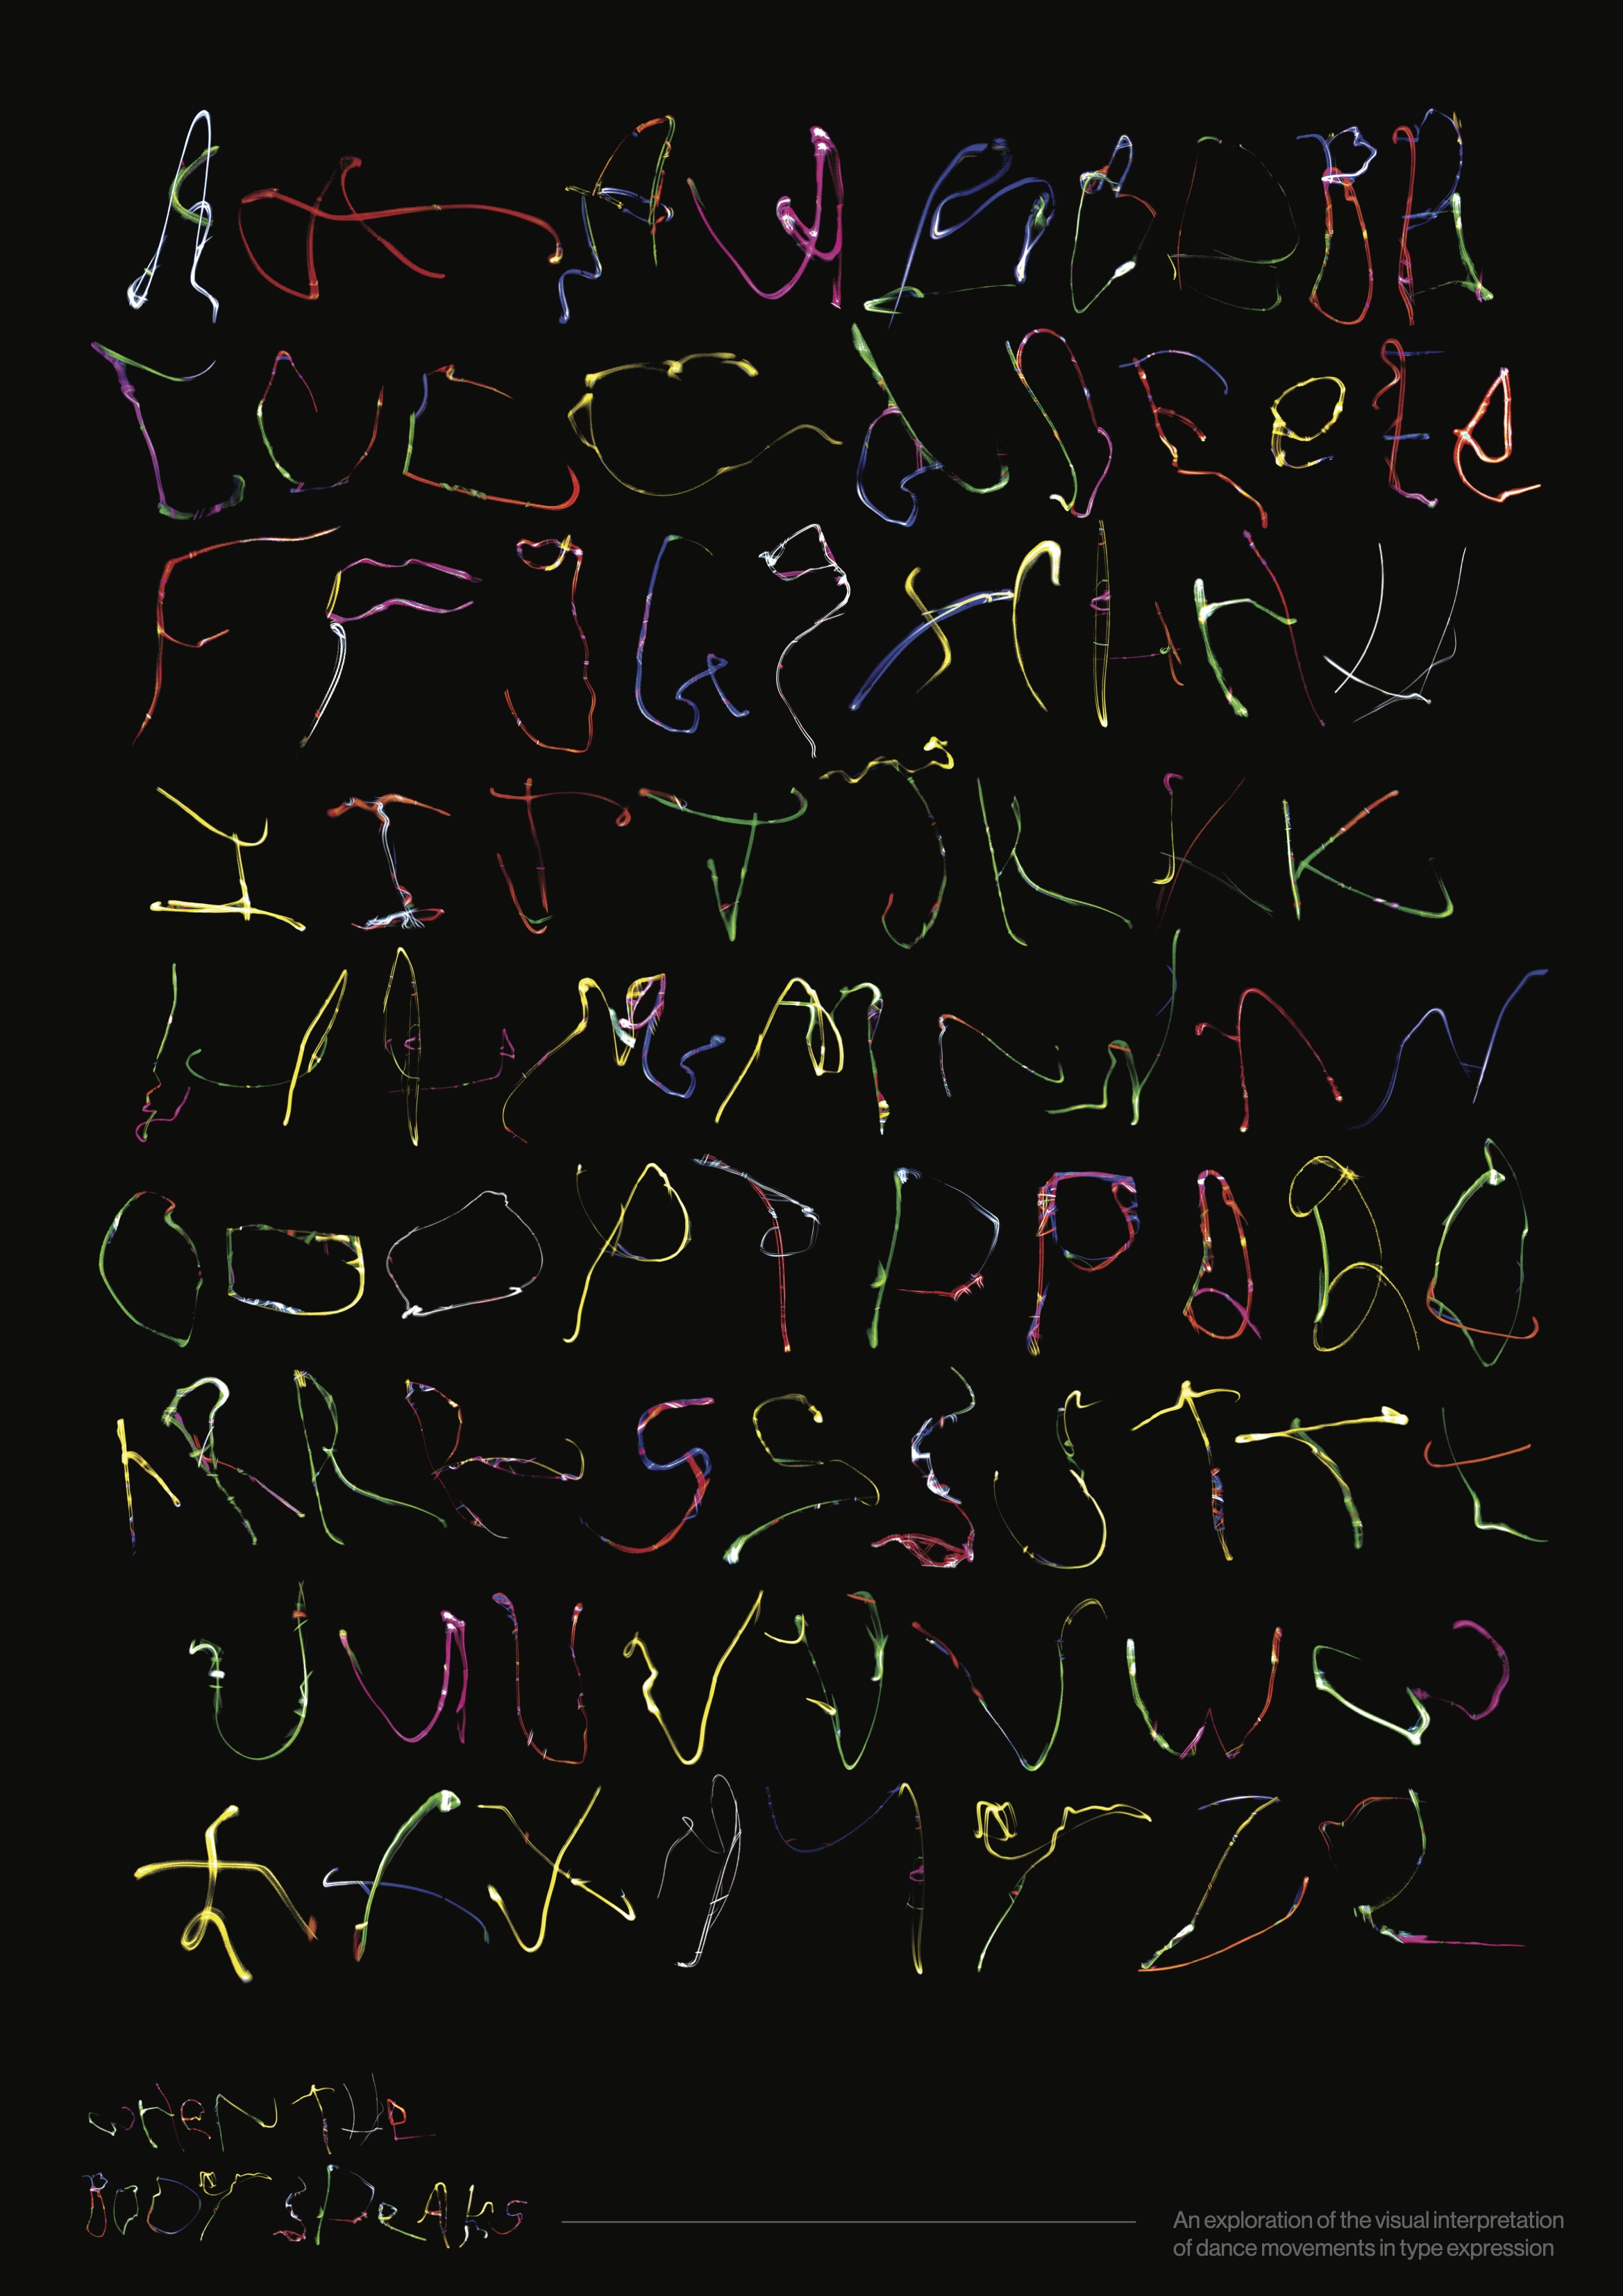 A A A A B B D B R
C C C C D D E e E e
F F g G g H H H H
I I J J J K K K
L L L M M N N N N
O O O P P P P Q Q Q
R R R R S S S S T T t
U U U V V V W W
X X X Y Y Y Z Z
WHEN THE
BODY SPEAKS
An exploration of the visual interpretation
of dance movements in type expression